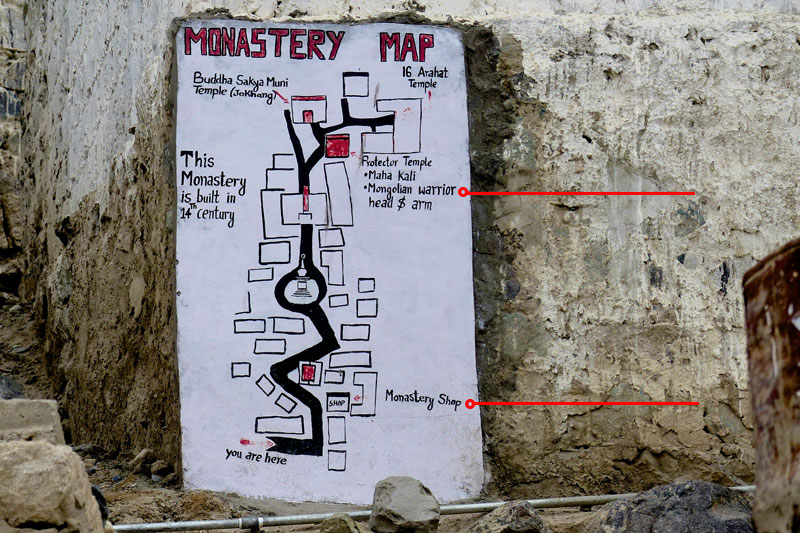 MONASTERY MAP
Buddha Sakya Muni
Temple (JoKhang)
16 Arahat
Temple
This
Monastery
is built in
14th century
Protector Temple
• Maha Kali
• Mongolian warrior
head & arm
SHOP
Monastery Shop
you are here